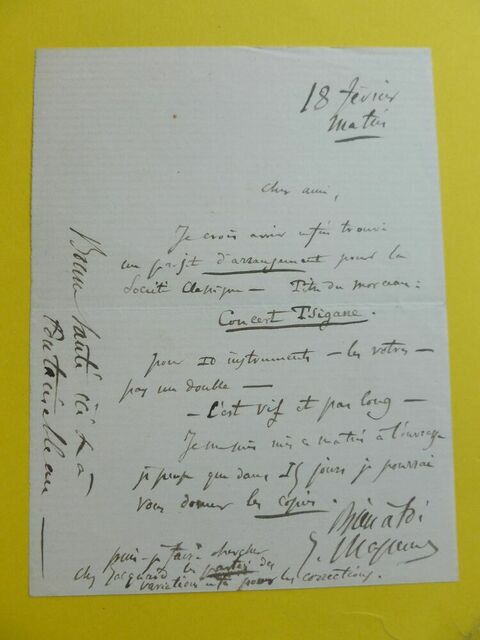 18 février
matin
cher ami,
Je crois avoir enfin trouvé
un projet d'arrangement pour la
Société Classique — Titre du morceau :
Concert Tsigane.
pour 10 instruments — les vôtres —
pas un double —
— C'est vif et pas long —
Je me suis mis ce matin à l'ouvrage
je pense que dans 15 jours je pourrai
vous donner les copies.
Bien à toi
puis-je faire chercher
chez Jacquard les parties des
variations pour les corrections.
Bonne santé ici &
Fontainebleau —